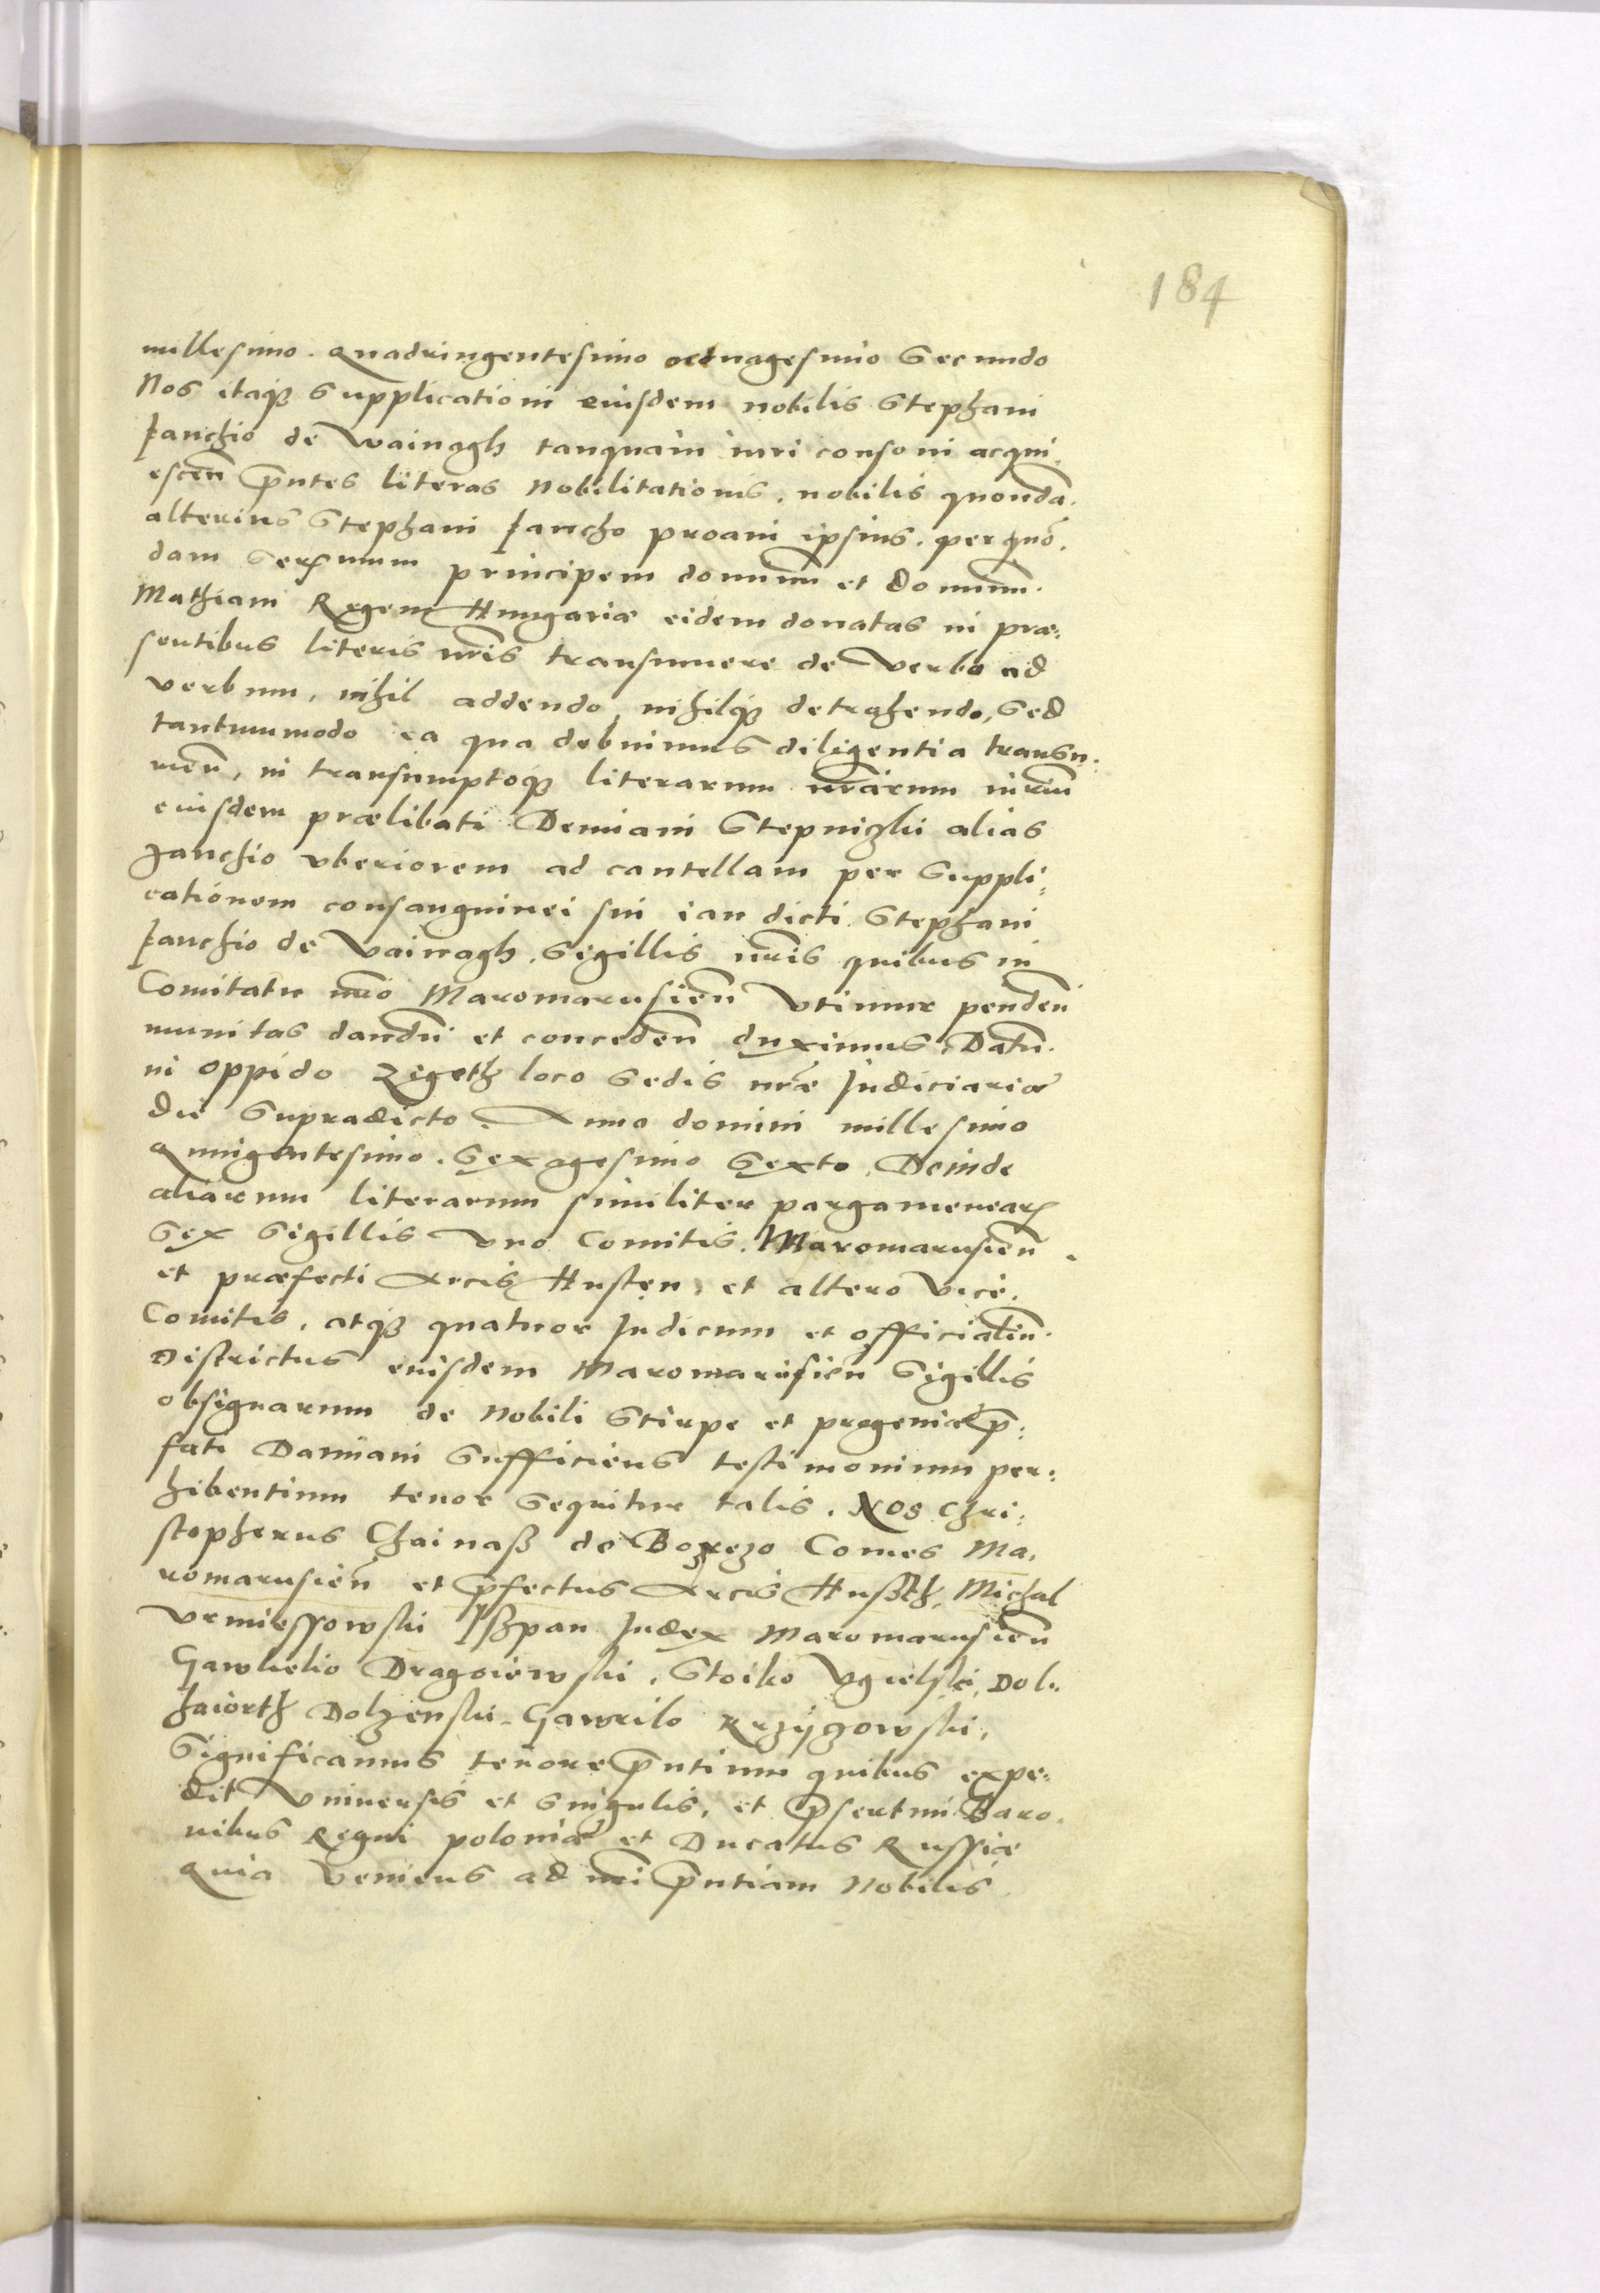 184
millesimo. Quadringentesimo octuagesimo Secundo
Nos itaq3 Supplicationi eiusdem nobilis Stephani
Janchio de Wainagh tanquam iuri consoni acqui,
escen̄ p̄ntes literas Nobilitationis, nobilis quondā.
alterius Stephani Jancho proaui ipsius. per quō,
dam principem dominū et Dominū.
Mathiam Regem Hungariæ eidem donatas in præ:
sentibus literis nr̄is transumere de Verbo ad
verbum, nihil addendo, nihilq3 detrahendo, Sed
tantummodo ea qua debuimus diligentia transu:
men̄, in transumptoq3 literarum nr̄arum
eiusdem prælibati Demiani Stepniczki alias
Janchio vberiorem ad cautellam per Suppli:
cationem consanguinei sui iam dicti Stephani
Janchio de Vainagh, Sigillis nr̄is quibus in
Comitatu nr̄o Maromarusien̄ Vtimur penden̄
munitas dandū et conceden̄ duximus. Datū.
in oppido Zigeth loco Sedis nr̄æ Judiciariæ
die Supradicto. Anno domini millesimo
Quingentesimo. Sexagesimo Sexto. Deinde
aliarum literarum similiter pargamenear
Sex Sigillis Vno Comitis. Maromarusien̄.
et præfecti Arcis Husten, et altero Vice.
Comitis, atq3 quatuor Judicum et officialiū.
Districtus eiusdem Maromarusien̄ Sigillis
obsignarum de Nobili Stirpe et progeniæ p̄:
fati Damiani Sufficiens testimonium per:
hibentium tenor Sequitur talis. Nos Chri:
stopherus Chainaß de Bozrezo Comes Ma,
romarusien̄ et p̄fectus Arcis Hußth, Michal
Vrmiessowski Jßpan Judex Maromarusien̄
Gawlielio Dragoiewski, Stoiko Vgielski, Dol:
haiorth Dolzenski. Gawrilo Krziżowski,
Significamus tenore p̄ntium quibus expe:
dit Vniuersis et singulis, et p̄sertim Baro,
nibus Regni poloniæ et Ducatus Russiæ
Quia Veniens ad nr̄i p̄ntiam Nobilis